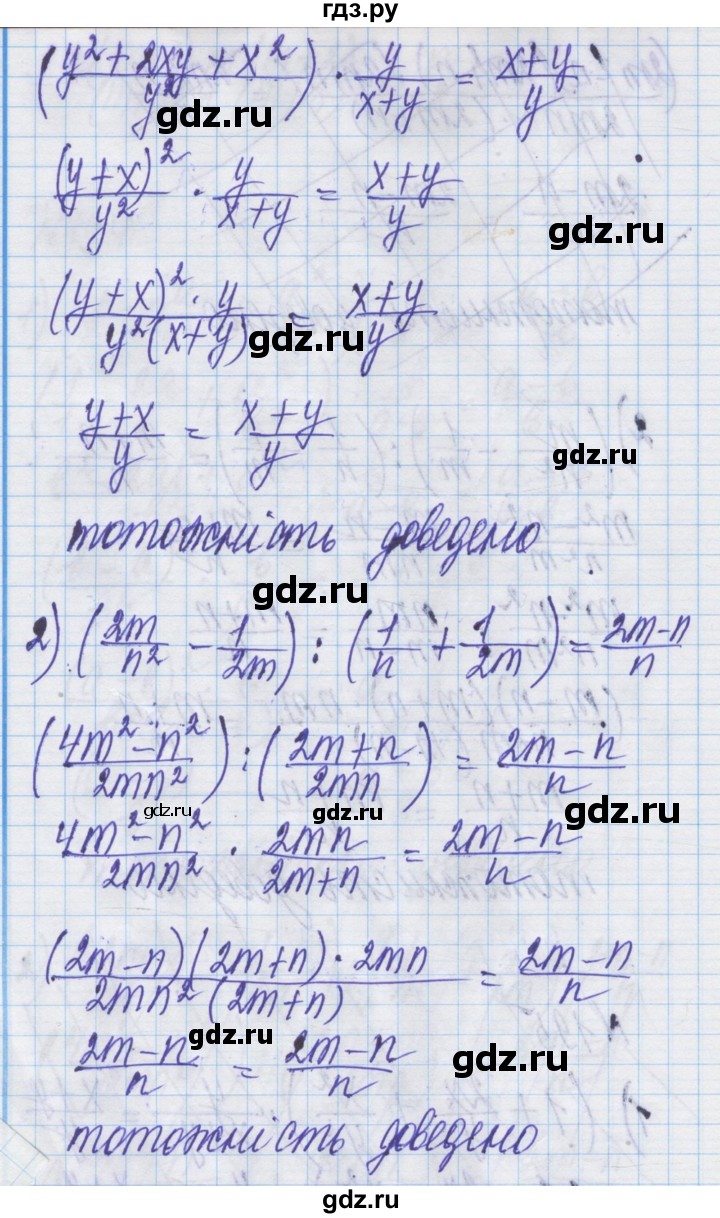 гдз.ру
(y²+2xy+x²/y²) · y/x+y = x+y/y
gdz.ru
(y+x)²/y² · y/x+y = x+y/y
gdz.ru
(y+x)²·y/y²(x+y) = x+y/y
gdz.ru
y+x/y = x+y/y
gdz.ru
тотожність доведено
gdz.ru
2) (2m/n² - 1/2m) : (1/n + 1/2m) = 2m-n/n
(4m²-n²/2mn²) : (2m+n/2mn) = 2m-n/n
gdz.ru gdz.ru gdz.ru
4m²-n²/2mn² · 2mn/2m+n = 2m-n/n
(2m-n)(2m+n)·2mn/2mn²(2m+n) = 2m-n/n
gdz.ru
2m-n/n = 2m-n/n
gdz.ru
тотожність доведено
gdz.ru